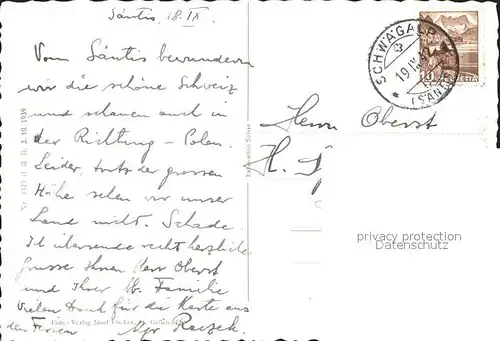 Säntis, 18. IX.
Vom Säntis bewundern
wir die schöne Schweiz
und schauen auch in
der Richtung - Polen.
Leider, trotz der grossen
Höhe sehen wir unser
Land nicht. Schade.
Ich übersende recht herzliche
Grüsse Ihnen Herr Oberst
und Ihrer lb. Familie
Vielen Dank für die Karte aus
den Ferien
SCHWÄGALP
(SÄNTIS)
19 IX
HELVETIA
10
Herrn Oberst
H.
privacy protection
Datenschutz
Foto - Verlag Josef
B. R. B. 3. 10. 1939